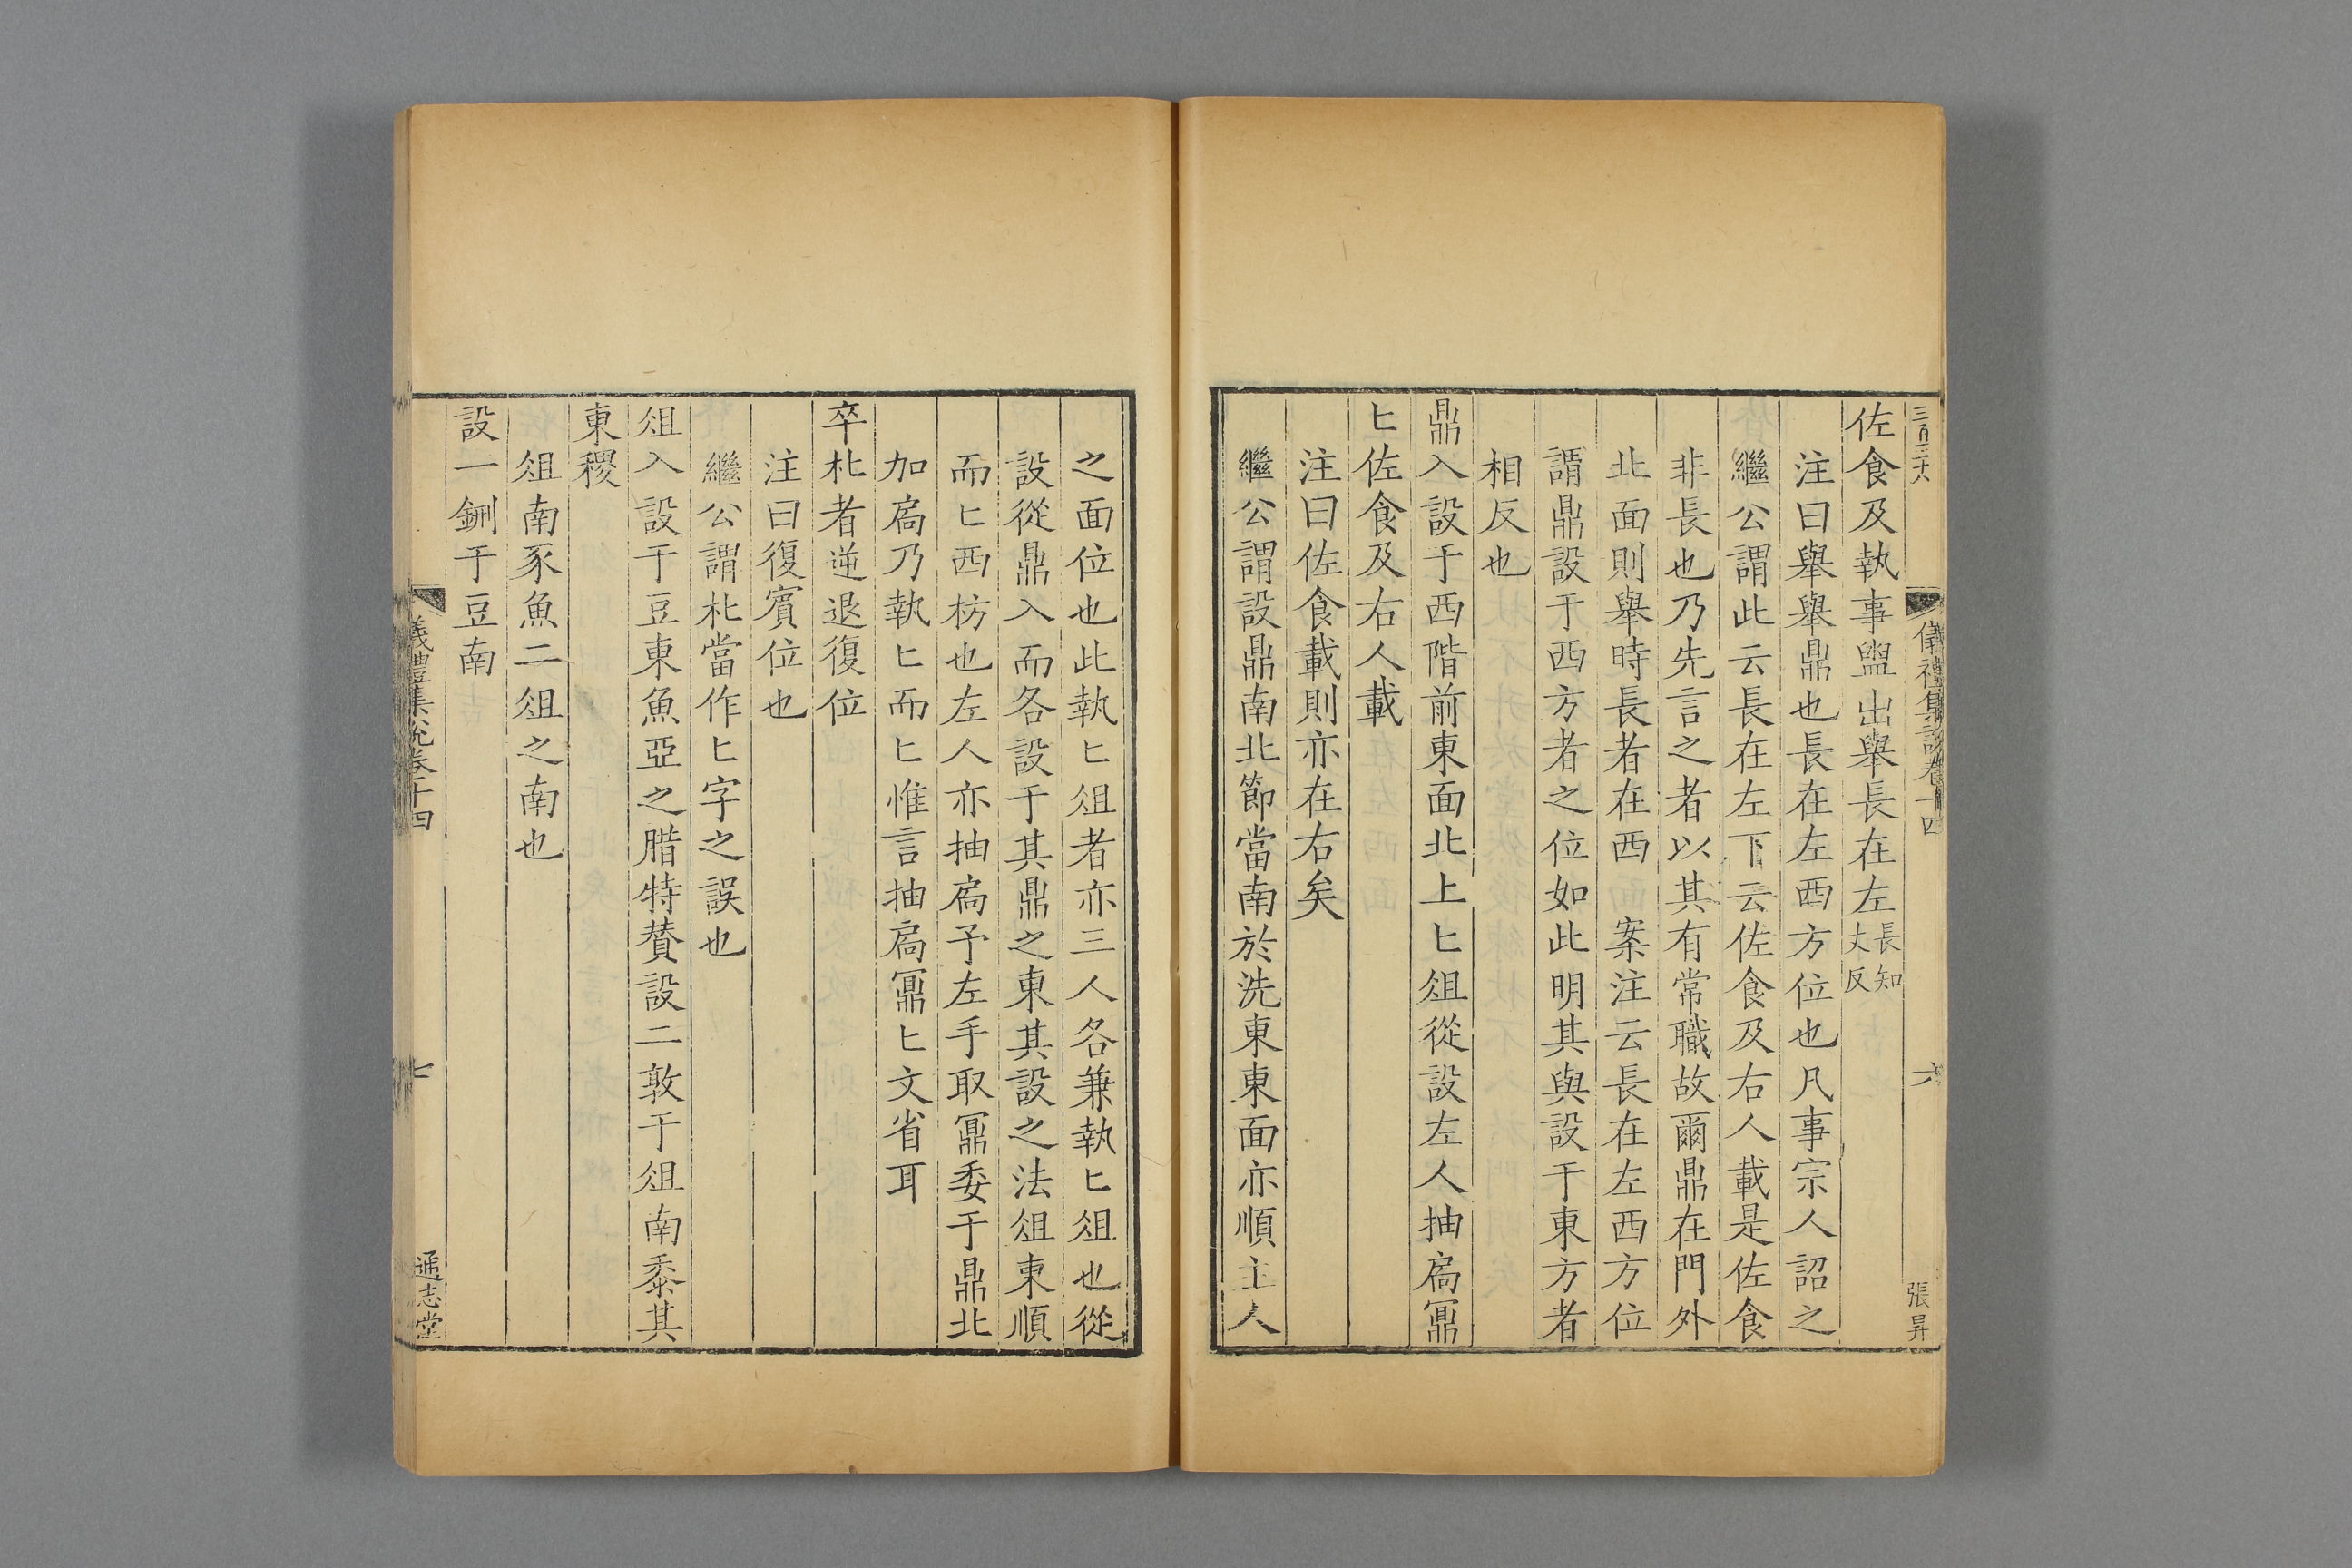 三百三十六
儀禮集說卷十四
六
張昇
佐食及執事盥出舉長在左長知丈反
注曰舉舉鼎也長在左西方位也凡事宗人詔之
繼公謂此云長在左下云佐食及右人載是佐食
非長也乃先言之者以其有常職故爾鼎在門外
北面則舉時長者在西 案注云長在左西方位
謂鼎設于西方者之位如此明其與設于東方者
相反也
鼎入設于西階前東面北上匕俎從設左人抽扃鼏
匕佐食及右人載
注曰佐食載則亦在右矣
繼公謂設鼎南北節當南於洗東東面亦順主人
之面位也此執匕俎者亦三人各兼執匕俎也從
設從鼎入而各設于其鼎之東其設之法俎東順
而匕西枋也左人亦抽扃予左手取鼏委于鼎北
加扃乃執匕而匕惟言抽扃鼏匕文省耳
卒朼者逆退復位
注曰復賓位也
繼公謂朼當作匕字之誤也
俎入設于豆東魚亞之腊特贊設二敦于俎南黍其
東稷
俎南豕魚二俎之南也
設一鉶于豆南
儀禮集說卷十四
七
通志堂